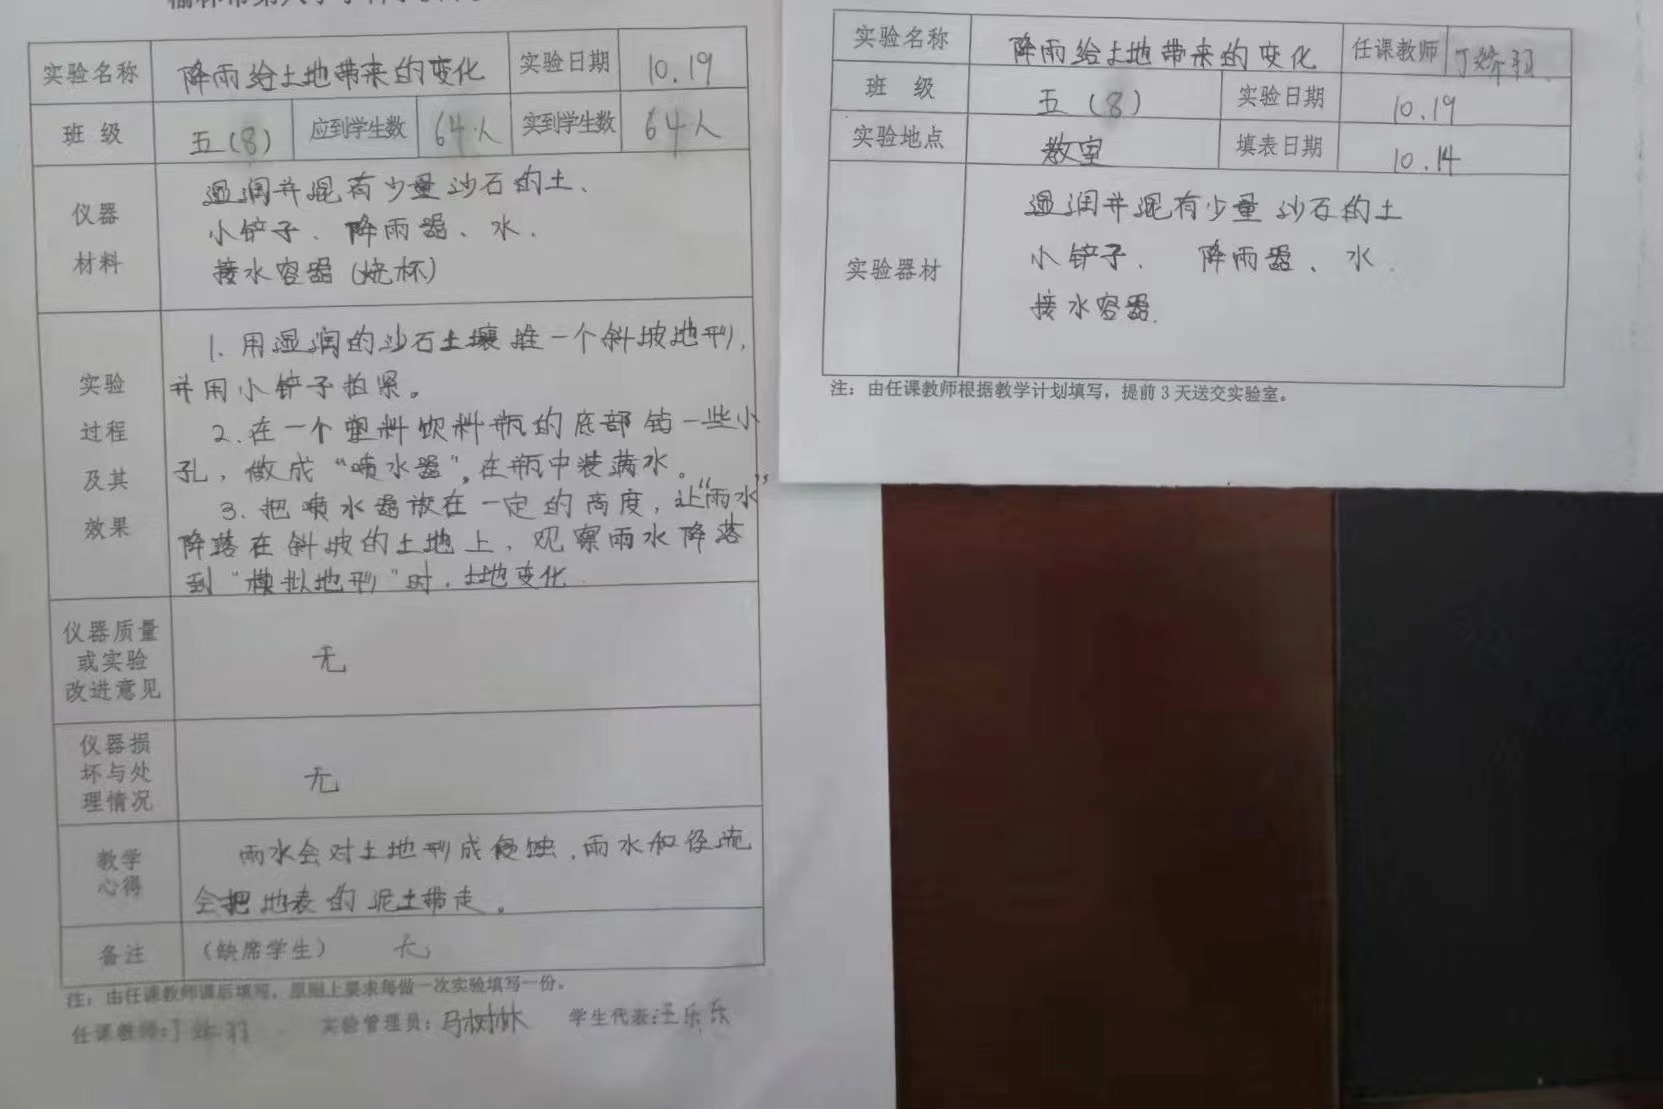 实验名称 降雨给土地带来的变化 实验日期 10.19
班级 五(8) 应到学生数 64人 实到学生数 64人
仪器材料
湿润并混有少量沙石的土、
小铲子、降雨器、水、
接水容器(烧杯)
实验过程及其效果
1. 用湿润的沙石土壤堆一个斜坡地形,
并用小铲子拍紧。
2. 在一个塑料饮料瓶的底部钻一些小
孔,做成“喷水器”,在瓶中装满水。
3. 把喷水器放在一定的高度,让“雨水”
降落在斜坡的土地上,观察雨水降落
到“模拟地形”时,土地变化
仪器质量或实验改进意见 无
仪器损坏与处理情况 无
教学心得
雨水会对土地形成侵蚀,雨水和径流
会把地表的泥土带走。
备注 (缺席学生) 无
注:由任课教师课后填写,原则上要求每做一次实验填写一份。
任课教师:丁 实验管理员:马树林 学生代表:王乐乐
实验名称 降雨给土地带来的变化 任课教师 丁
班级 五(8) 实验日期 10.19
实验地点 教室 填表日期 10.14
实验器材
湿润并混有少量沙石的土
小铲子、 降雨器、水
接水容器.
注:由任课教师根据教学计划填写,提前3天送交实验室。